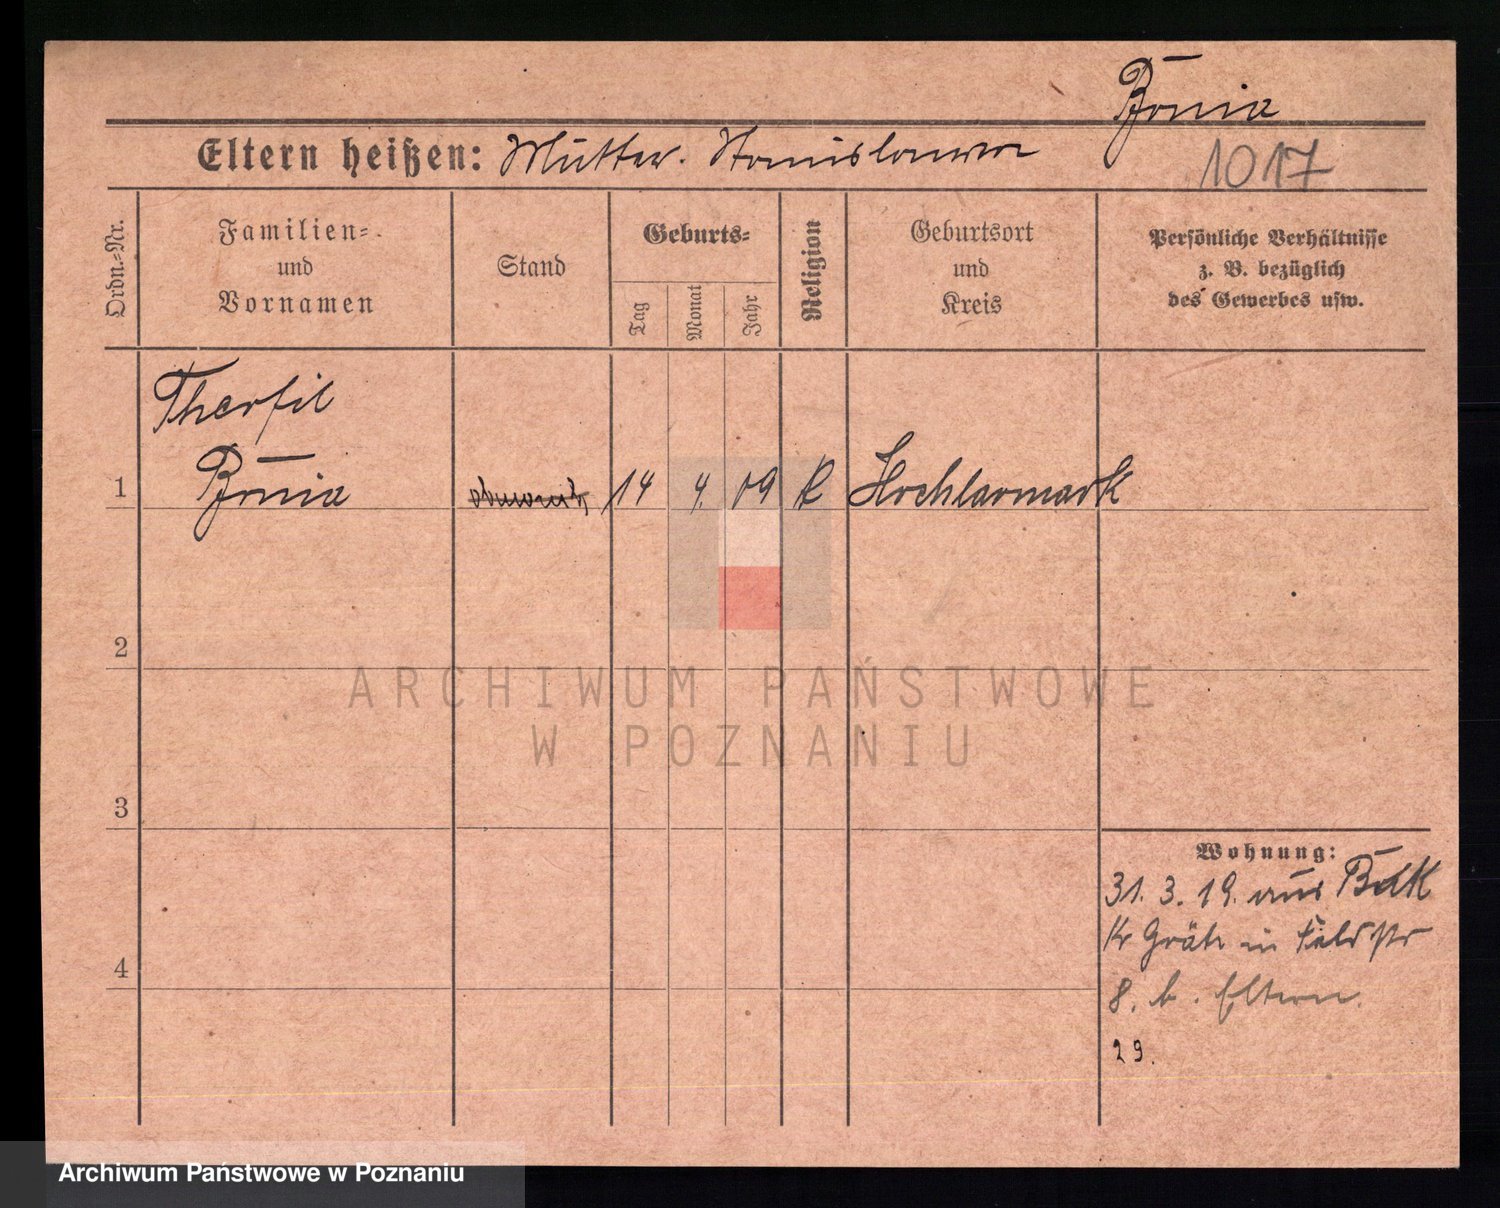 Bonia
Eltern heißen: Mutter. Stanislawa
1017
Ordn.-Nr.
Familien-
und
Vornamen
Stand
Geburts-
Tag
Monat
Jahr
Religion
Geburtsort
und
Kreis
Persönliche Verhältnisse
z. B. bezüglich
des Gewerbes usw.
1
14 4. 09 K Hochlarmark
2
3
4
Wohnung:
31. 3. 19. aus
Kr Grätz in Feldstr
8. b. Eltern.
29.
ARCHIWUM PAŃSTWOWE
W POZNANIU
Archiwum Państwowe w Poznaniu